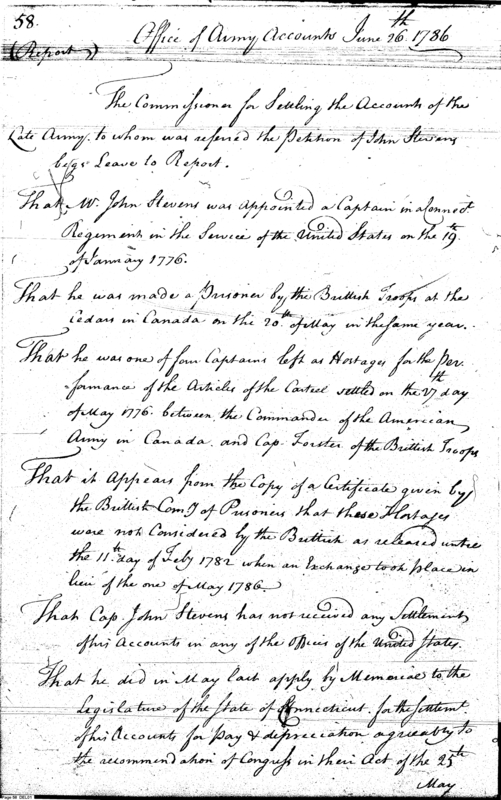 58.
Office of Army Accounts June 26th 1786
(Report)
The Commissioner for Settling the Accounts of the
Late Army. to whom was referred the Petition of John Stevens
begs Leave to Report.
That Mr. John Stevens was appointed a Captain in a Connect.
Regiment in the Service of the United States on the 19th
of January 1776.
That he was made a Prisoner by the Brittish Troops at the
Cedars in Canada on the 20th of May in the same year.
That he was one of four Captains left as Hostages for the Per-
formance of the Articles of the Cartel settled on the 27th day
of May 1776. between the Commander of the American
Army in Canada and Cap. Forster of the Brittish Troops
That it appears from the Copy of a Certificate given by
the Brittish Comy of Prisoners that these Hostages
were not Considered by the Brittish as released untill
the 11th day of Feby 1782 when an Exchange took place in
lieu of the one of May 1786.
That Cap. John Stevens has not received any Settlement
of his Accounts in any of the Offices of the United States.
That he did in May last apply by Memorial to the
Legislature of the State of Connecticut. for the settlemt.
of his Accounts for pay & depreciation agreeably to
the recommendation of Congress in their Act of the 25th
May